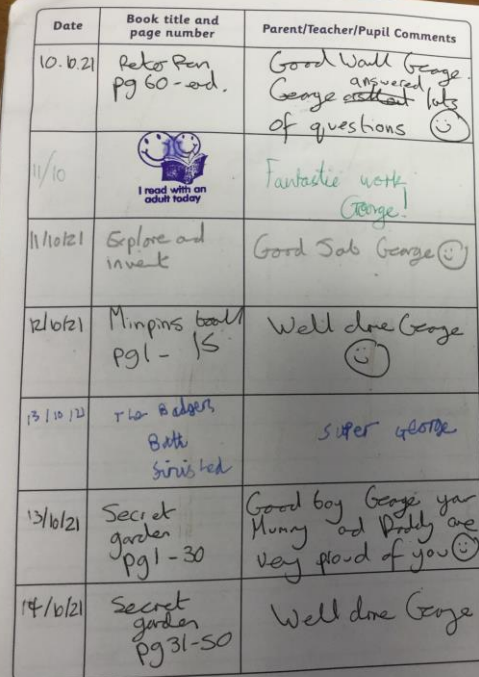 Date
Book title and
page number
Parent/Teacher/Pupil Comments
10.10.21
Peter Pan
pg 60-end.
Good Wall George.
George answered lots
of questions
11/10
I read with an
adult today
Fantastic work
George!
11/10/21
Explore and
invent
Good Job George
12/10/21
Minpins book
pg1 - 15
Well done George
13/10/21
The Badgers
Bath
finished
super George
13/10/21
Secret
garden
pg1-30
Good boy George your
Mummy and Daddy are
very proud of you
14/10/21
Secret
garden
pg31-50
Well done George